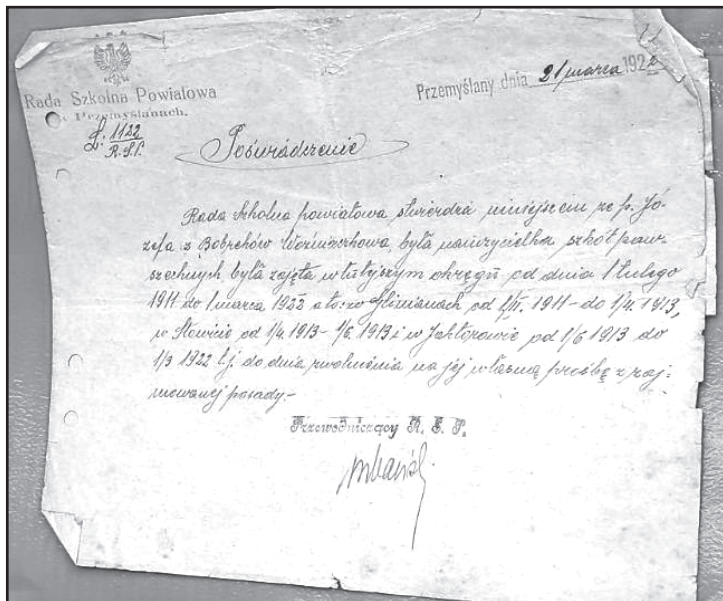 Rada Szkolna Powiatowa
w Przemyślanach.
L. 1122
R.S.P.
Przemyślany dnia 21 marca 1922
Poświadczenie
Rada szkolna powiatowa stwierdza niniejszem że p. Jó-
zefa z Bobrehów była nauczycielka szkół pow-
szechnych była zajęta w tutejszym okręgu od dnia 1 lutego
1911 do 1 marca 1922 a to: w Glinianach od 1/II. 1911 - do 1/4. 1913,
w Słowicie od 1/4 1913 - 1/6 1913 i w od 1/6 1913 do
1/3 1922 t.j. do dnia zwolnienia na jej własną prośbę z zaj-
mowanej posady.-
Przewodniczący R. S. P.